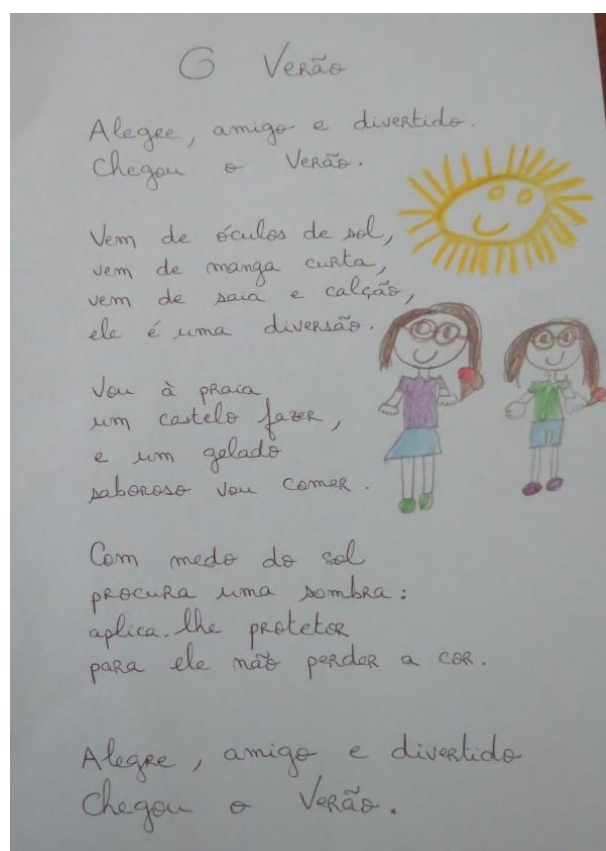 O Verão
Alegre, amigo e divertido.
Chegou o Verão.
Vem de óculos de sol,
vem de manga curta,
vem de saia e calção,
ele é uma diversão.
Vou à praia
um castelo fazer,
e um gelado
saboroso vou comer.
Com medo do sol
procura uma sombra:
aplica-lhe protetor
para ele não perder a cor.
Alegre, amigo e divertido
Chegou o Verão.